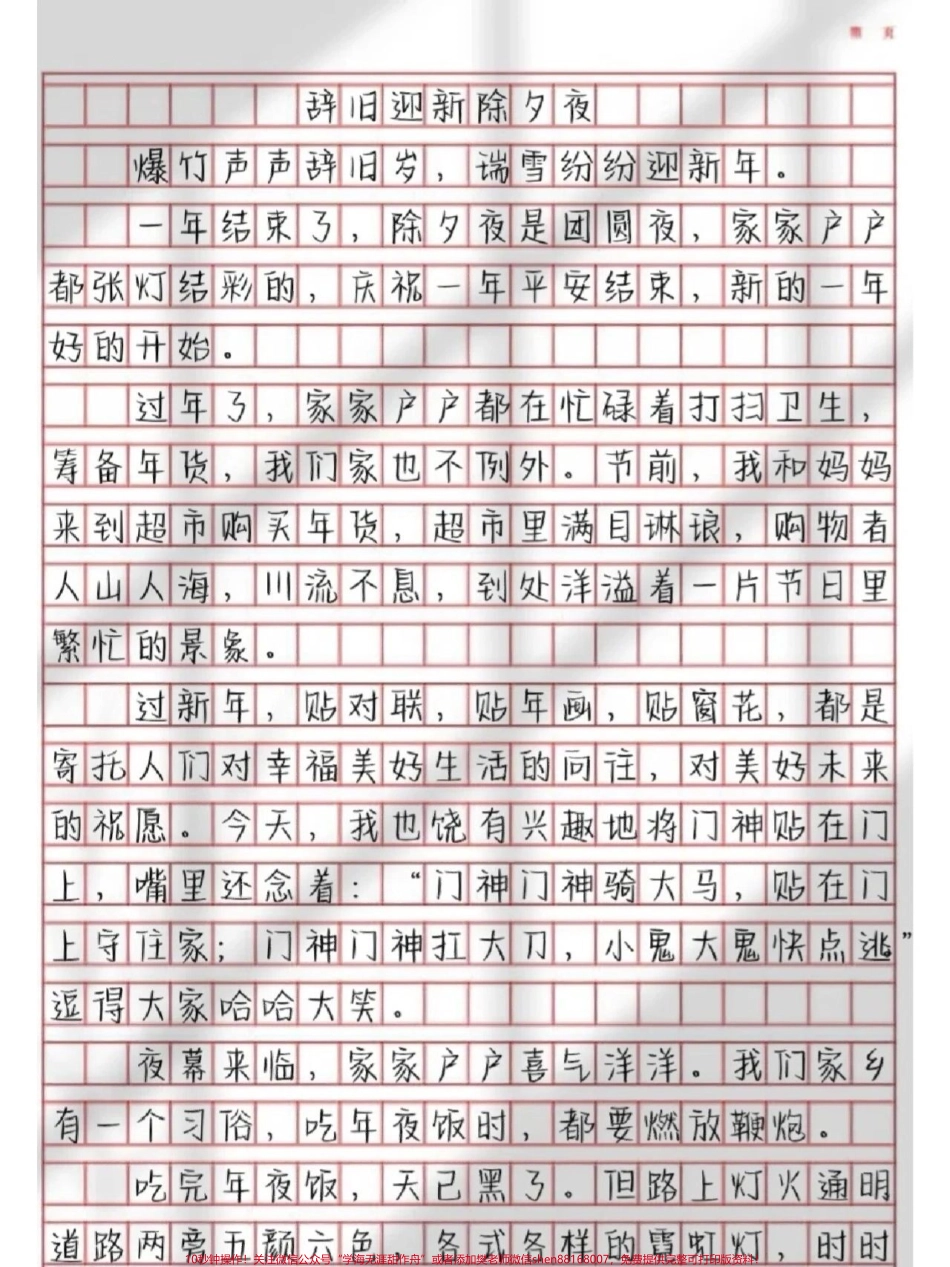 第 页
辞旧迎新除夕夜
爆竹声声辞旧岁，瑞雪纷纷迎新年。
一年结束了，除夕夜是团圆夜，家家户户
都张灯结彩的，庆祝一年平安结束，新的一年
好的开始。
过年了，家家户户都在忙碌着打扫卫生，
筹备年货，我们家也不例外。节前，我和妈妈
来到超市购买年货，超市里满目琳琅，购物者
人山人海，川流不息，到处洋溢着一片节日里
繁忙的景象。
过新年，贴对联，贴年画，贴窗花，都是
寄托人们对幸福美好生活的向往，对美好未来
的祝愿。今天，我也饶有兴趣地将门神贴在门
上，嘴里还念着：“门神门神骑大马，贴在门
上守住家；门神门神扛大刀，小鬼大鬼快点逃。”
逗得大家哈哈大笑。
夜幕来临，家家户户喜气洋洋。我们家乡
有一个习俗，吃年夜饭时，都要燃放鞭炮。
吃完年夜饭，天已黑了。但路上灯火通明
道路两旁五颜六色、各式各样的霓虹灯，时时
10秒钟操作！关注微信公众号“学海无涯甜作舟”或者添加樊老师微信shen88168007，免费提供完整可打印版资料！